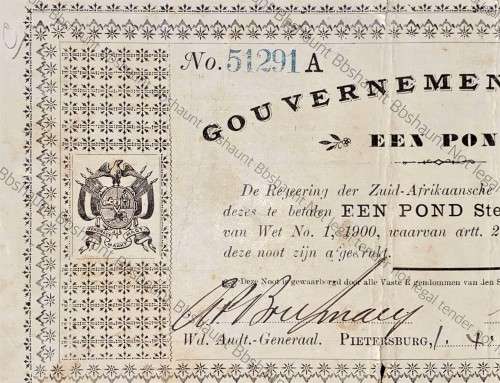 No. 51291 A
GOUVERNEMEN
EEN PON
De Regeering der Zuid-Afrikaansche
dezes te betalen EEN POND Ste
van Wet No. 1, 1900, waarvan artt. 2
deze noot zijn afgedrukt.
Deze Noot is gewaarborgd door alle Vaste Eigendommen van den S
Wd. Audt.-Generaal. PIETERSBURG, 1.
Bbshaunt Not legal tender